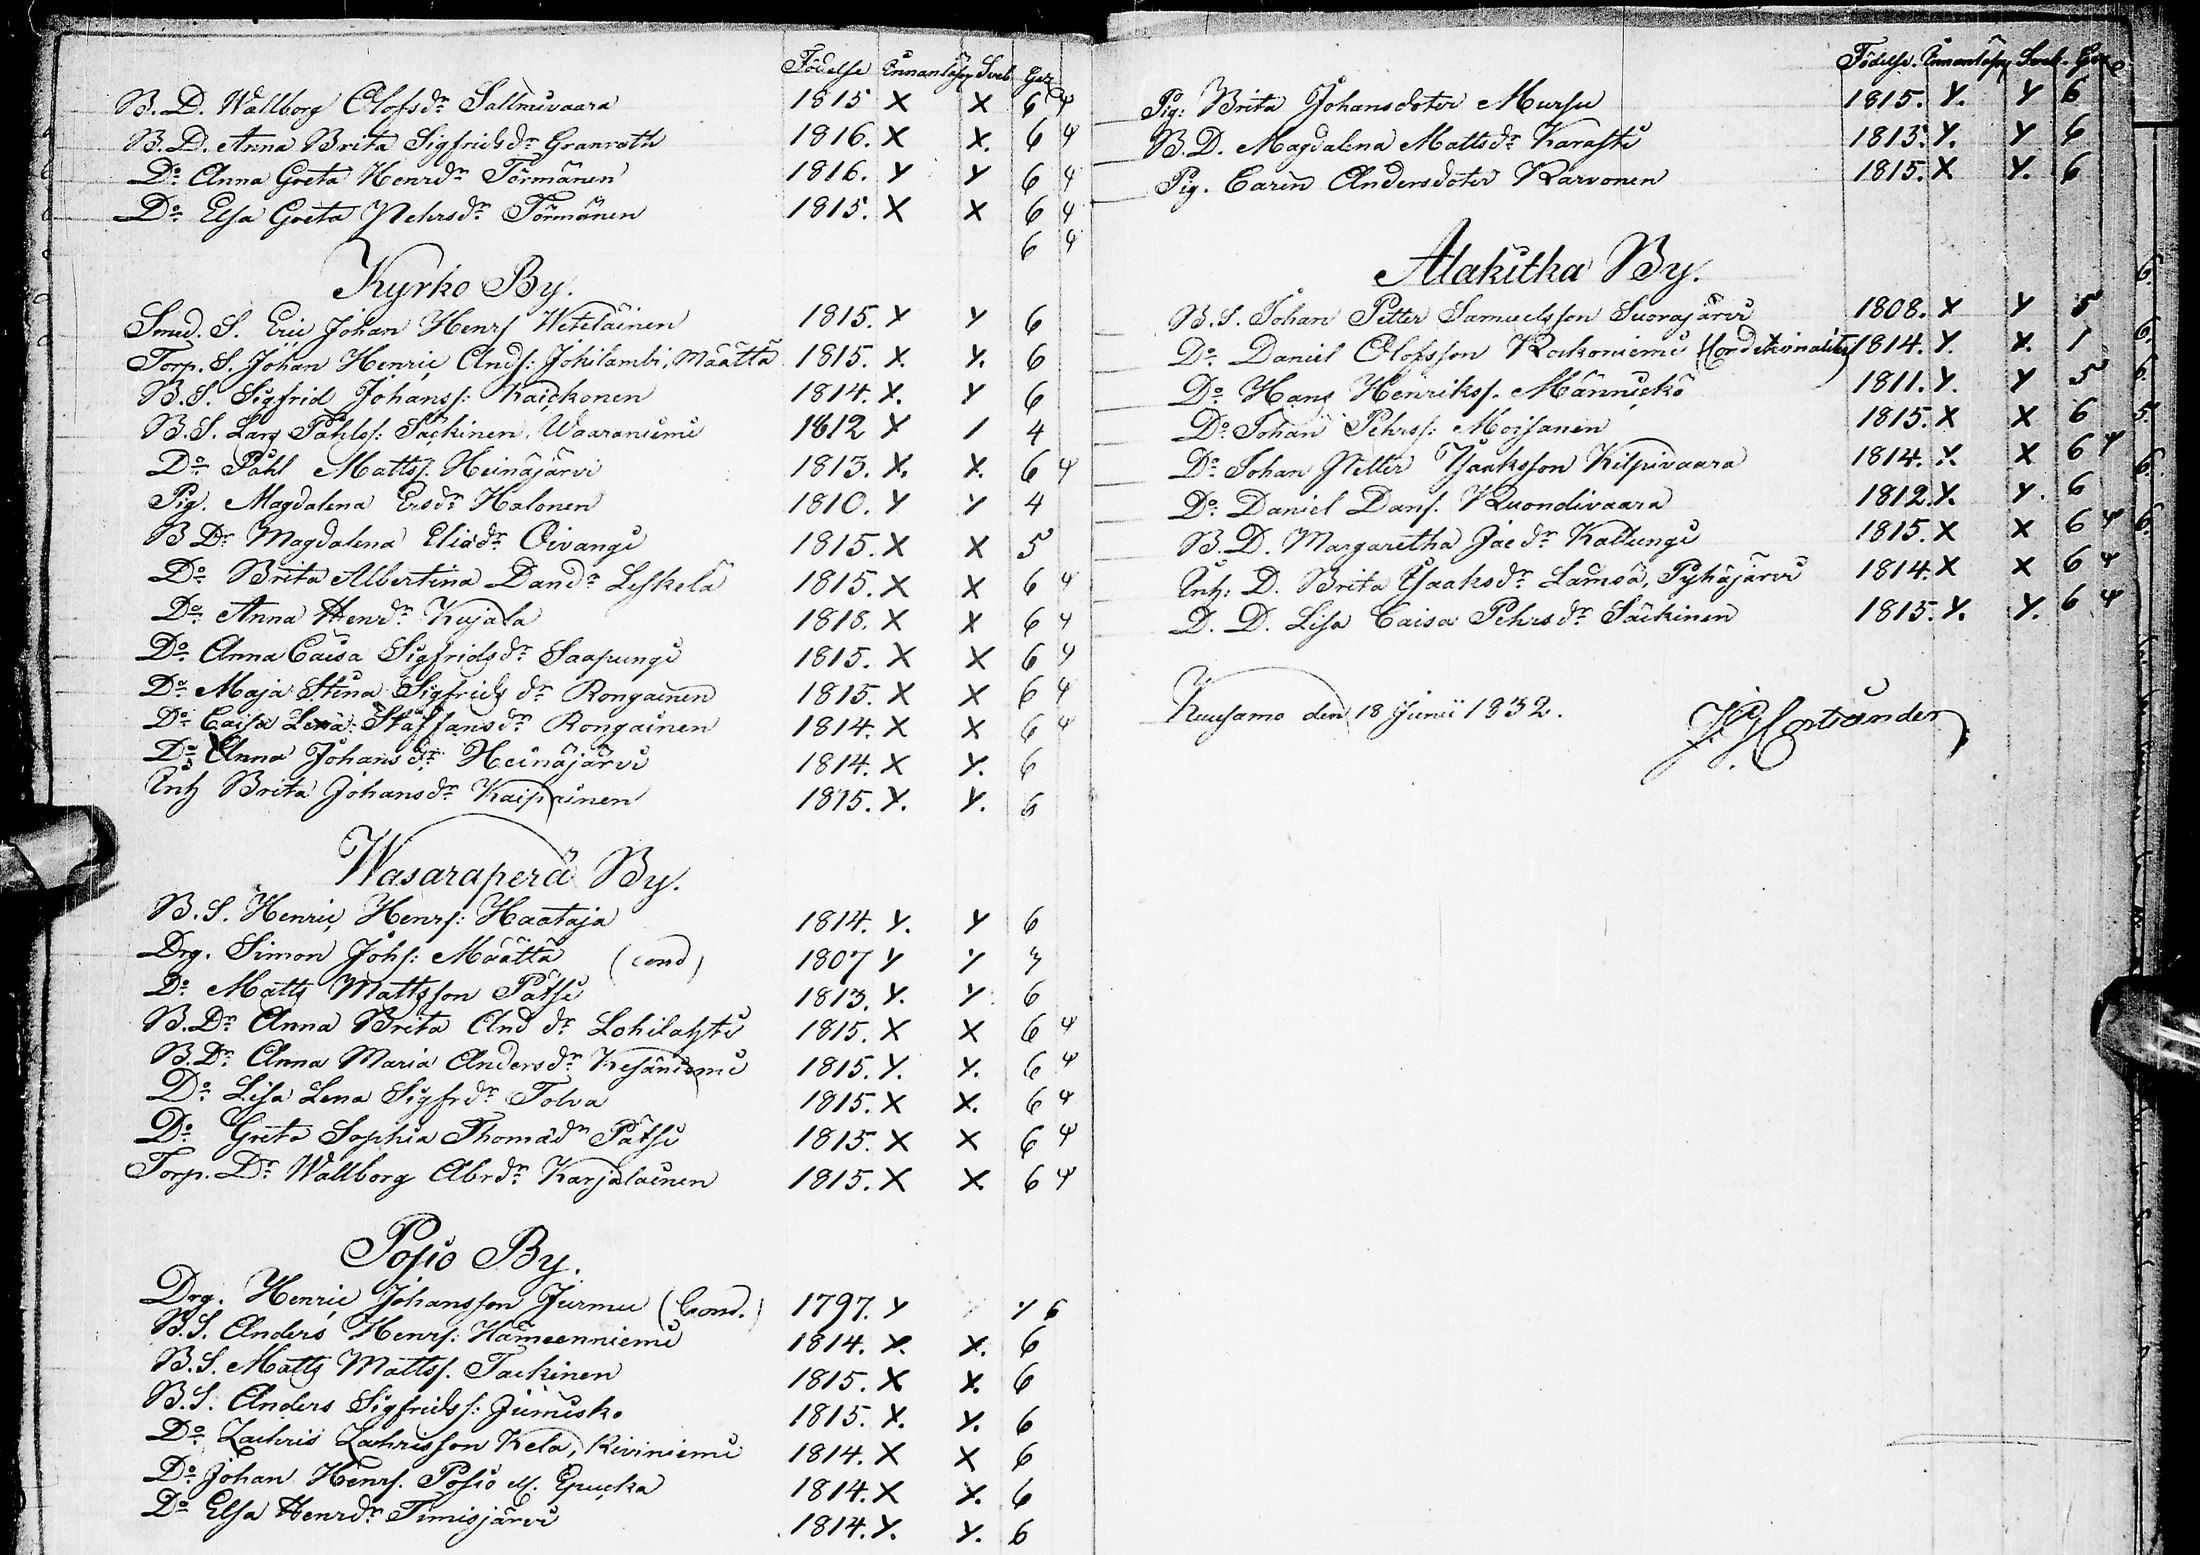 Födelse Innanläsn Sveb Gez
B. D. Wallborg Olofsdr Sallmivaara 1815 X X 6 4
B. D. Anna Brita Sigfridsdr Granroth 1816. X X. 6 4
Do Anna Greta Henrdr Törmänen 1816. Y Y 6 4
Do Elsa Greta Pehrsdr Törmänen 1815. X X 6 4
6 4
Kyrko By.
Smed. S. Eric Johan Henrs Weteläinen 1815. Y Y 6
Torp. S. Johan Henric Ands: Johilambi, Määttä 1815. X. Y. 6
B. S. Sigfrid Johanss: Kaickonen 1814. Y. Y 6
B. S. Lars Påhlss: Säckinen, Waaraniemi 1812 Y 1 4
Do Påhl Mattss. Heinäjärvi 1813. X. X. 6 4
Pig. Magdalena Ersdr Halonen 1810. Y Y 4
B Dr Magdalena Eliædr Oivangi 1815. X X 5
Do Brita Albertina Dandr Leskelä 1815. X X 6 4
Do Anna Henrdr Kujala 1818. X X 6 4
Do Anna Caisa Sigfridsdr Saapungi 1815. X X 6 4
Do Maja Stina Sigfridsdr Rongainen 1815. X X 6 4
Do Caisa Lena Staffansdr Rongainen 1814. X X 6 4
Do Anna Johansdr Heinäjärvi 1814. X Y. 6
Inh Brita Johansdr Kaipainen 1815. Y. Y. 6
Wasaraperä By.
B. S. Henric Henrs: Haataja 1814. Y. Y 6
Drg. Simon Johs: Määttä (cond) 1807 Y Y 3
Do Matts Mattsson Pätsi 1813. Y. Y 6
B. Dr Anna Brita And dr Lohilahti 1815. X X 6 4
B. Dr Anna Maria Andersdr Kesäniemi 1815. Y. Y. 6 4
Do Lisa Lena Sigfrdr Tolva 1815. X X. 6 4
Do Greta Sophia Thomædr Pätsi 1815. X X 6 4
Torp. Dr Wallborg Abrdr Karjalainen 1815. X X. 6 4
Posio By.
Drg. Henric Johansson Jurmu (Cond.) 1797. Y Y 6
B. S. Anders Henrs: Hämeenniemi 1814. X. X. 6
B. S. Matts Mattss. Tackinen 1815. X X. 6
B. S. Anders Sigfridss: Jumisko 1815. X. Y. 6
Do Zachris Zachrisson Kela, Kiviniemi 1814. X X 6
Do Johan Henrs. Posio 1814. X X. 6
Do Elsa Henrdr Timisjärvi 1814. Y. Y. 6
Födelse. Innanläsn Sveb. Gez
Pig: Brita Johansdoter Mursu 1815. Y. Y 6
B. D. Magdalena Mattsdr Karasti 1813. Y. Y 6
Pig. Carin Andersdoter Karvonen 1815. X Y. 6
Alakitka By.
B. S. Johan Petter Samuelsson Suorajärvi 1808. X Y 5
Do Daniel Olofsson Rackoniemi 1814. Y. X. 1
Do Hans Henrikss. Männickö 1811. Y. Y 5
Do Johan Pehrss: Moisanen 1815. X X 6
Do Johan Petter Isaaksson Kilpivaara 1814. Y. X 6 4
Do Daniel Dans. Kuondivaara 1812. Y. Y. 6
B. D. Margaretha Jacdr Kallungi 1815. X X 6 4
Inh: D. Brita Isaaksdr Lämsä, Pyhäjärvi 1814. X X 6 4
D. D. Lisa Caisa Pehrsdr Säckinen 1815. Y. Y. 6 4
Kuusamo den 18 Junii 1832.